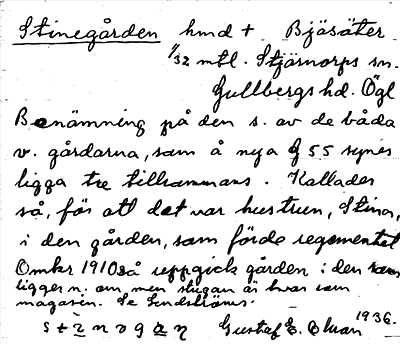 Stinegården hmd + Bjäsäter
1/32 mtl. Stjärnorps sn.
Gullbergs hd. Ögl
Benämning på den s. av de båda
v. gårdarna, som å nya g 55 synes
ligga tre tillsammans. Kallades
så, för att det var hustrun, Stina,
i den gården, som förde regementet
Omkr 1910 så uppgick gården i den som
ligger n. om, men stugan är kvar som
magasin. Se Lindströms.
Gustaf E. 1936.